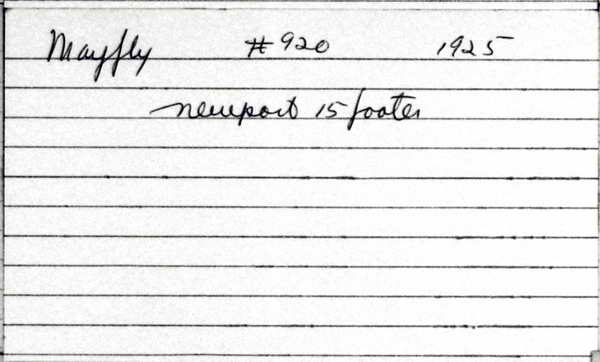 Mayfly #920 1925
Newport 15 footer